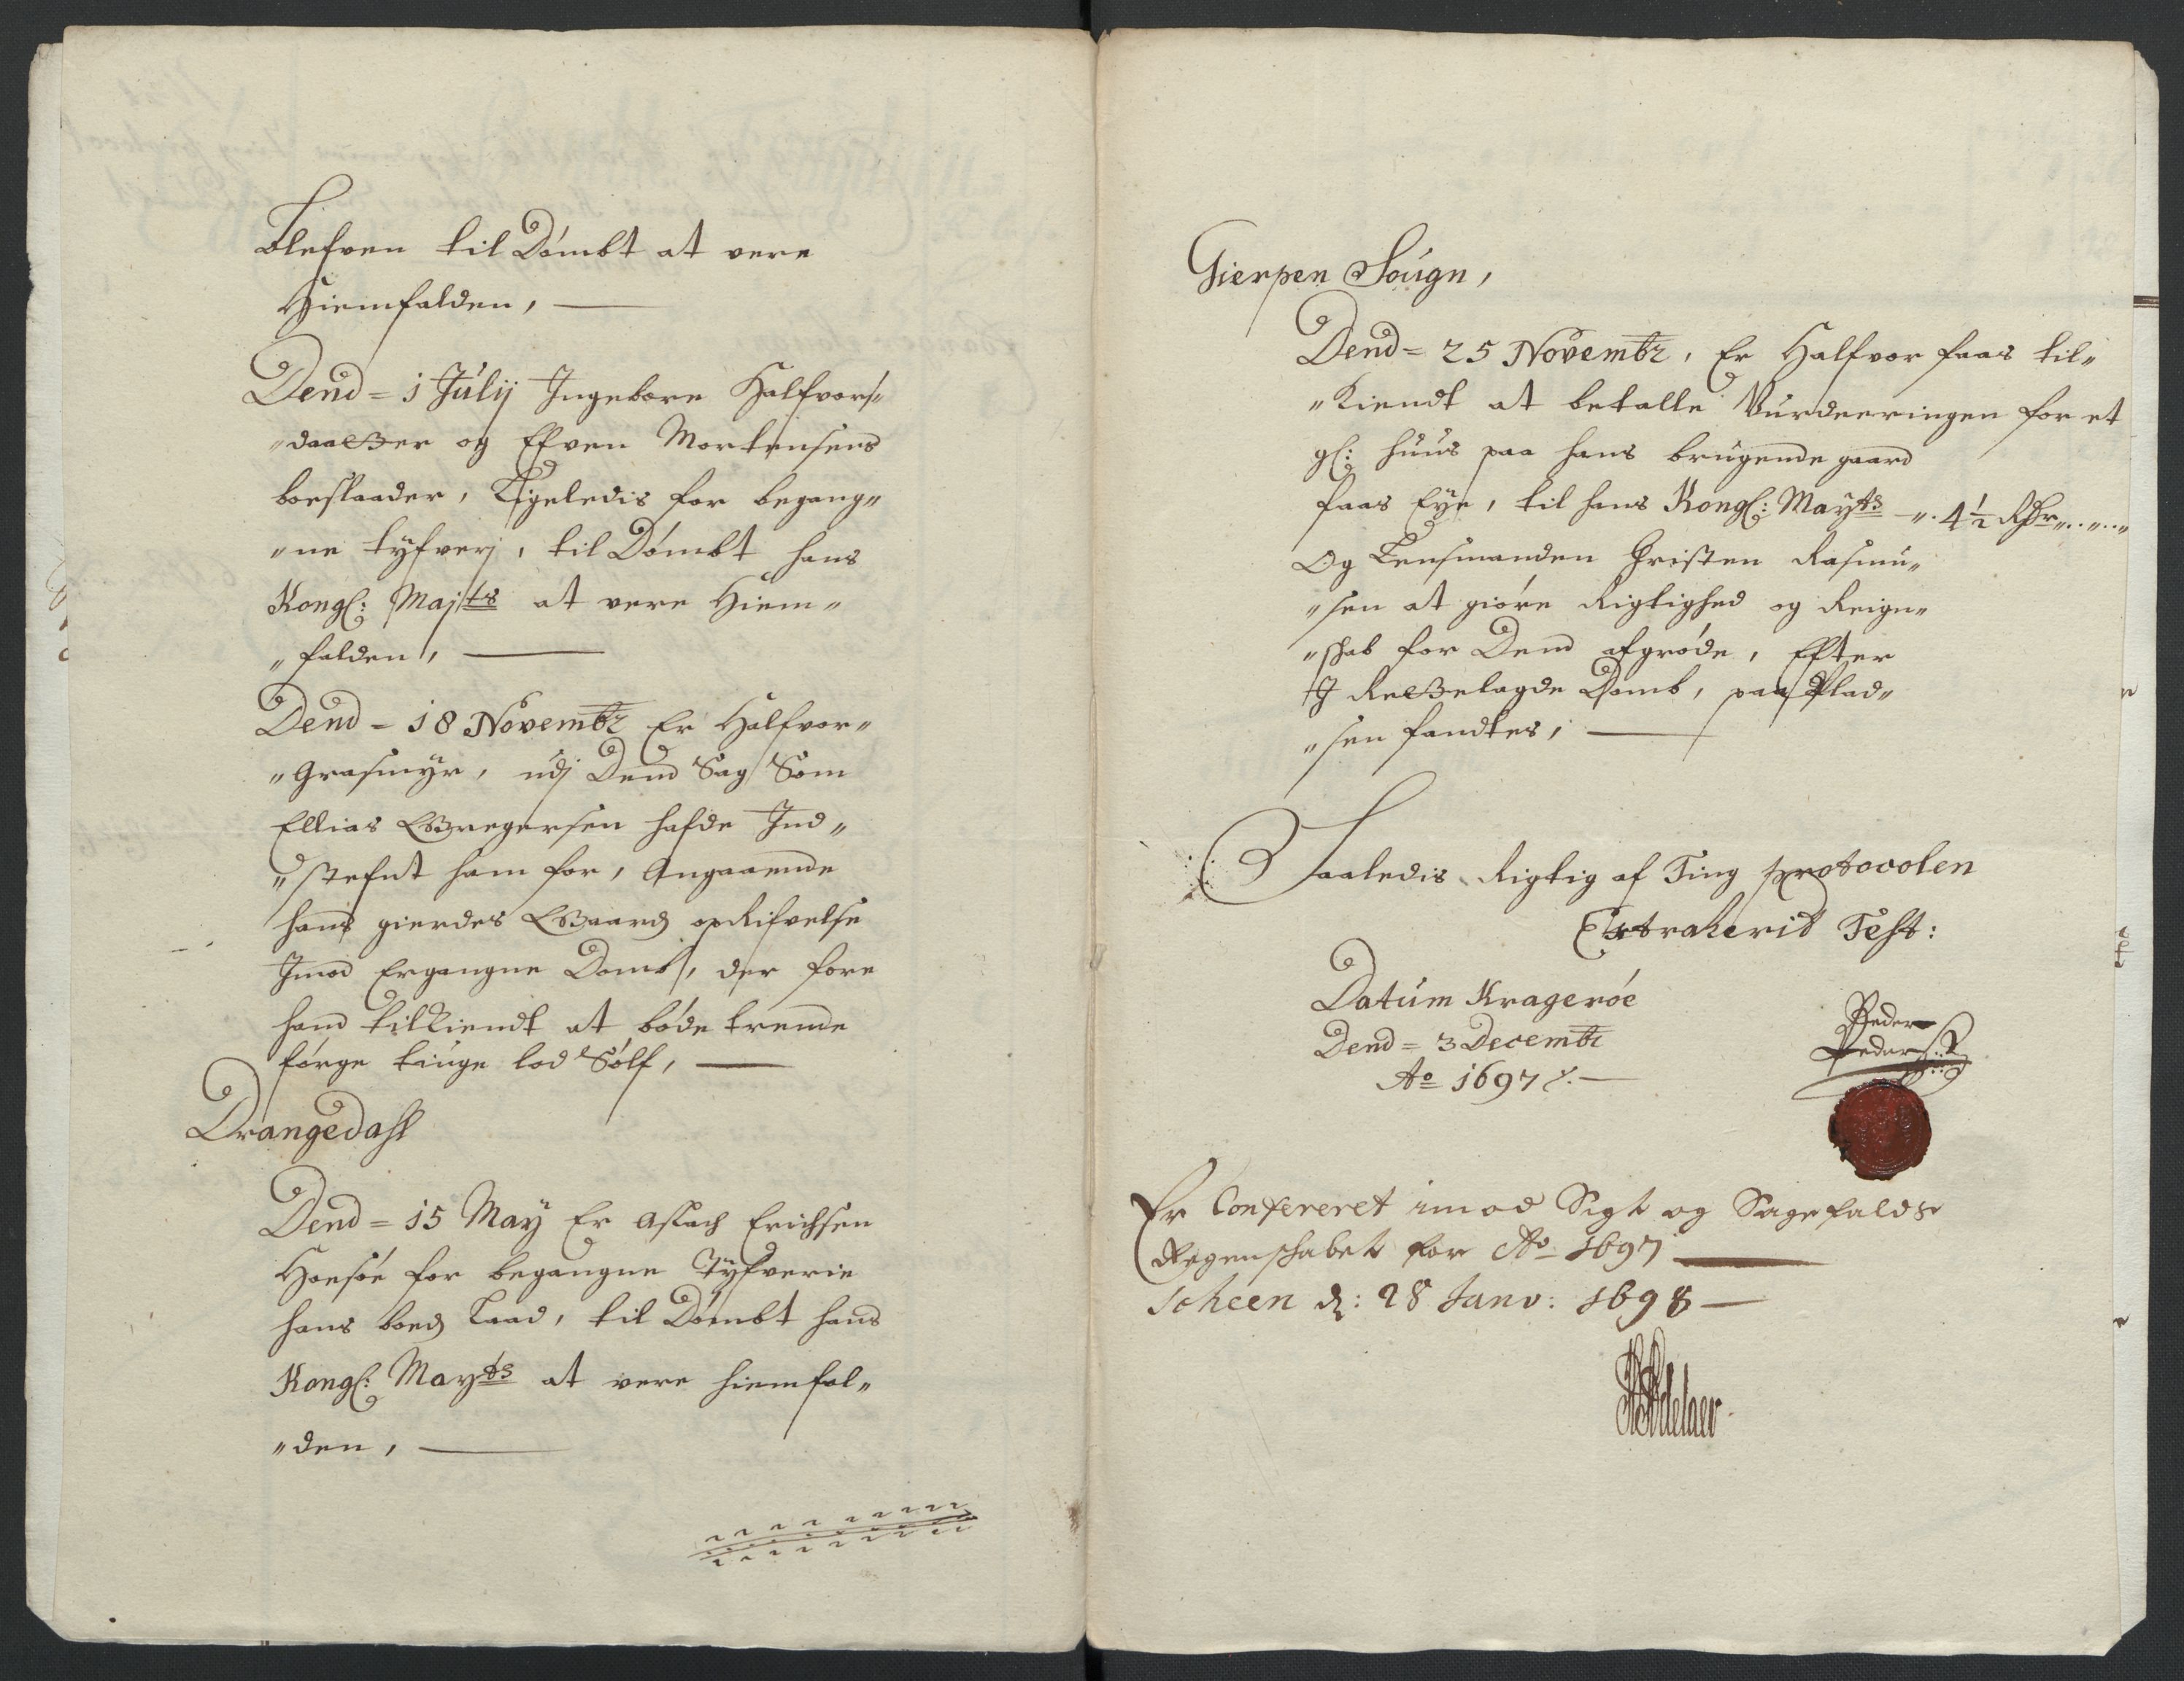 blefven til Dømbt at vere
Hiemfalden,
Dend = 1 Julij Ingebore Halfvors„
„daatter og Efven Mortensens
boeslaader, Ligeledis for begang„
„ne tyfverj, til Dømbt hans
Kongl: Majts at vere Hiem„
„falden,
Dend = 18 Novembr Er Halfvor„
„Grasmyr, udj Dend Sag Som
Ellias Gregersen hafde Ind„
„stefnt ham for, Angaaende
hans gierdes Gaards opRifvelse
Imod Ergangne Domb, der fore
hand tilkiendt at bøde trende
førge tiuge lod Sølf,
Drangedahl
Dend = 15 May Er Aslach Erichsen
Hoesøe for begangne Tyfverie
hans boes Laad, til Dømbt hans
Kongl: Mayts at vere hiemfal„
„den,
Gierpen Sougn,
Dend = 25 Novembr, Er Halfvor faas til„
„Kiendt at betalle Vurdeeringen for et
gl: huus paa hans brugende gaard
faas Eye, til hans Kongl: Mayts „. 4½ Rdr „..„..„
Og Lensmanden Christen Rasmu„
„sen at giøre Rigtighed og Reign„
„schab for Dend afgrøde, Efter
J Rettelagde Domb, paa Plad„
„sen fandtes,
Saaledis Rigtig af Ting protocolen
Extraherit Test:
Datum Kragerøe
Dend = 3 Decembr
Ao 1697
Peder
Peders:
Er Confereret imod Sigt og Sagefalds
Regenschabet for Ao 1697
Scheen d: 28 Janv: 1698
Adelaer